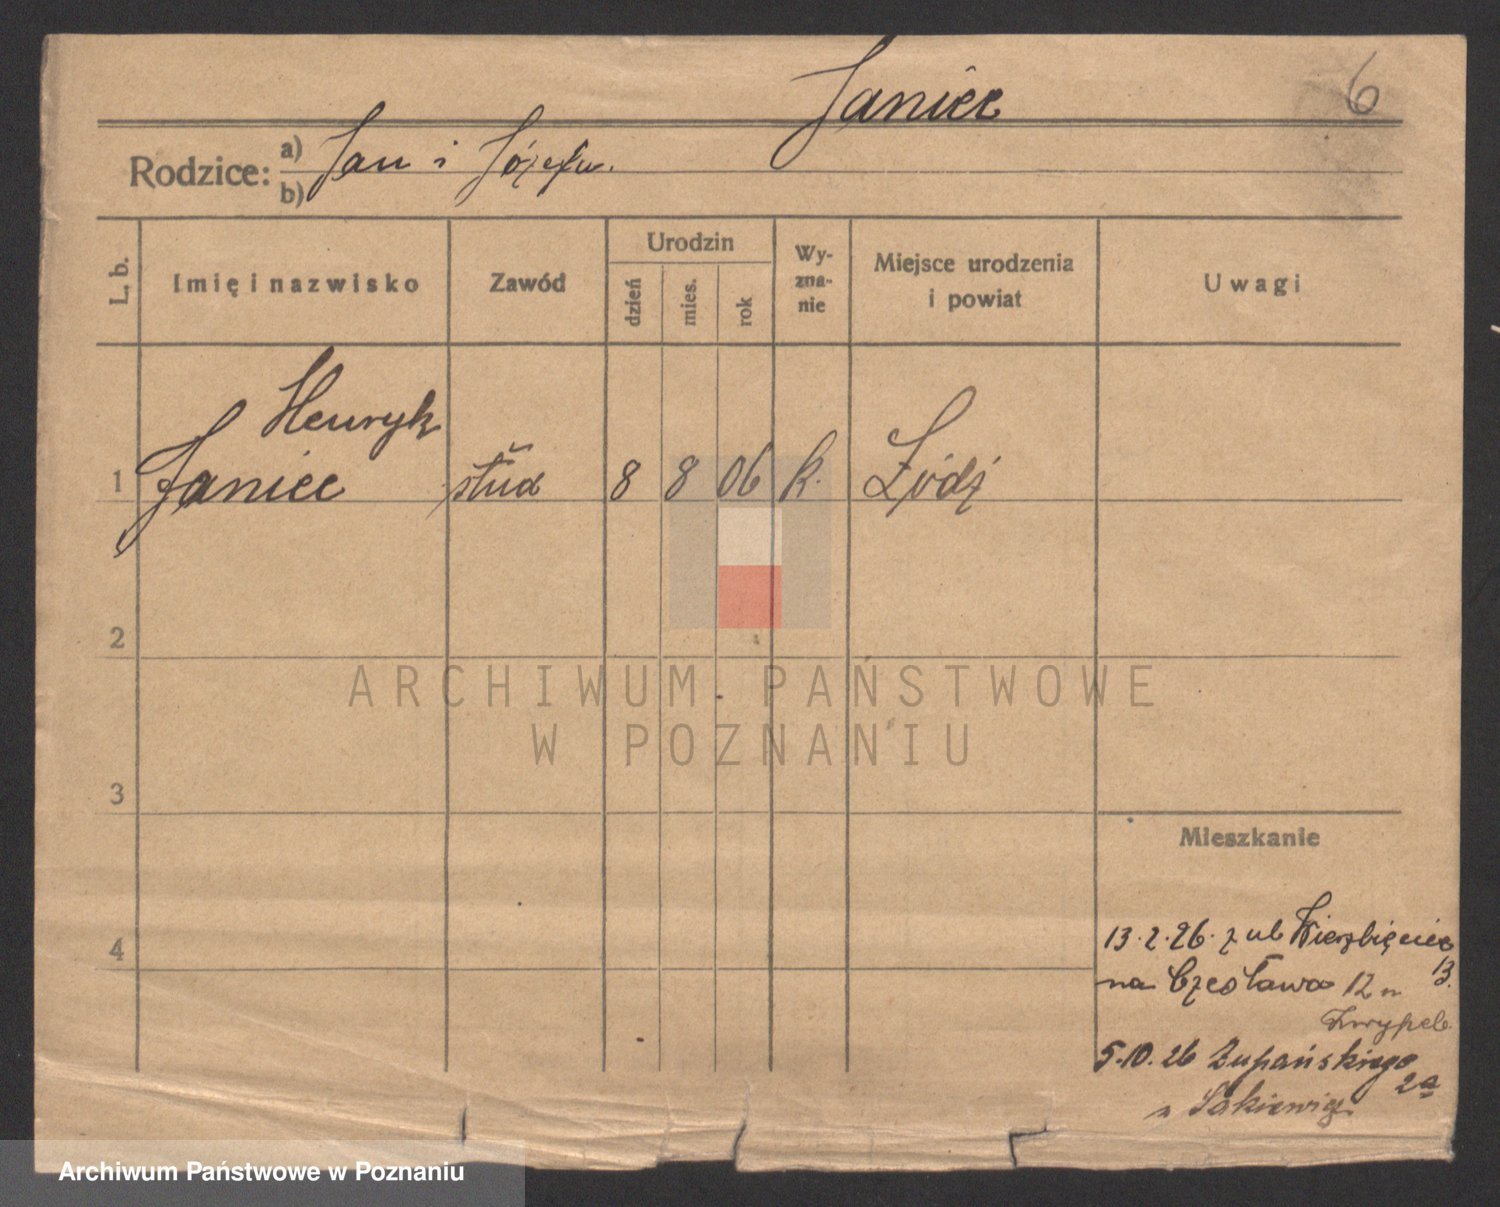 Janiec
6
Rodzice: a) Jan i Józefa.
b)
L. b.
Imię i nazwisko
Zawód
Urodzin
dzień
mies.
rok
Wy-
zna-
nie
Miejsce urodzenia
i powiat
Uwagi
Henryk
1 Janiec stud 8 8 06 k. Łódź
2
3
4
Mieszkanie
13.2.26. z ul Wierzbięcice
13.
na Czesława 12 n
5.10.26 Żupańskiego
2a
n
ARCHIWUM PAŃSTWOWE
W POZNANIU
Archiwum Państwowe w Poznaniu